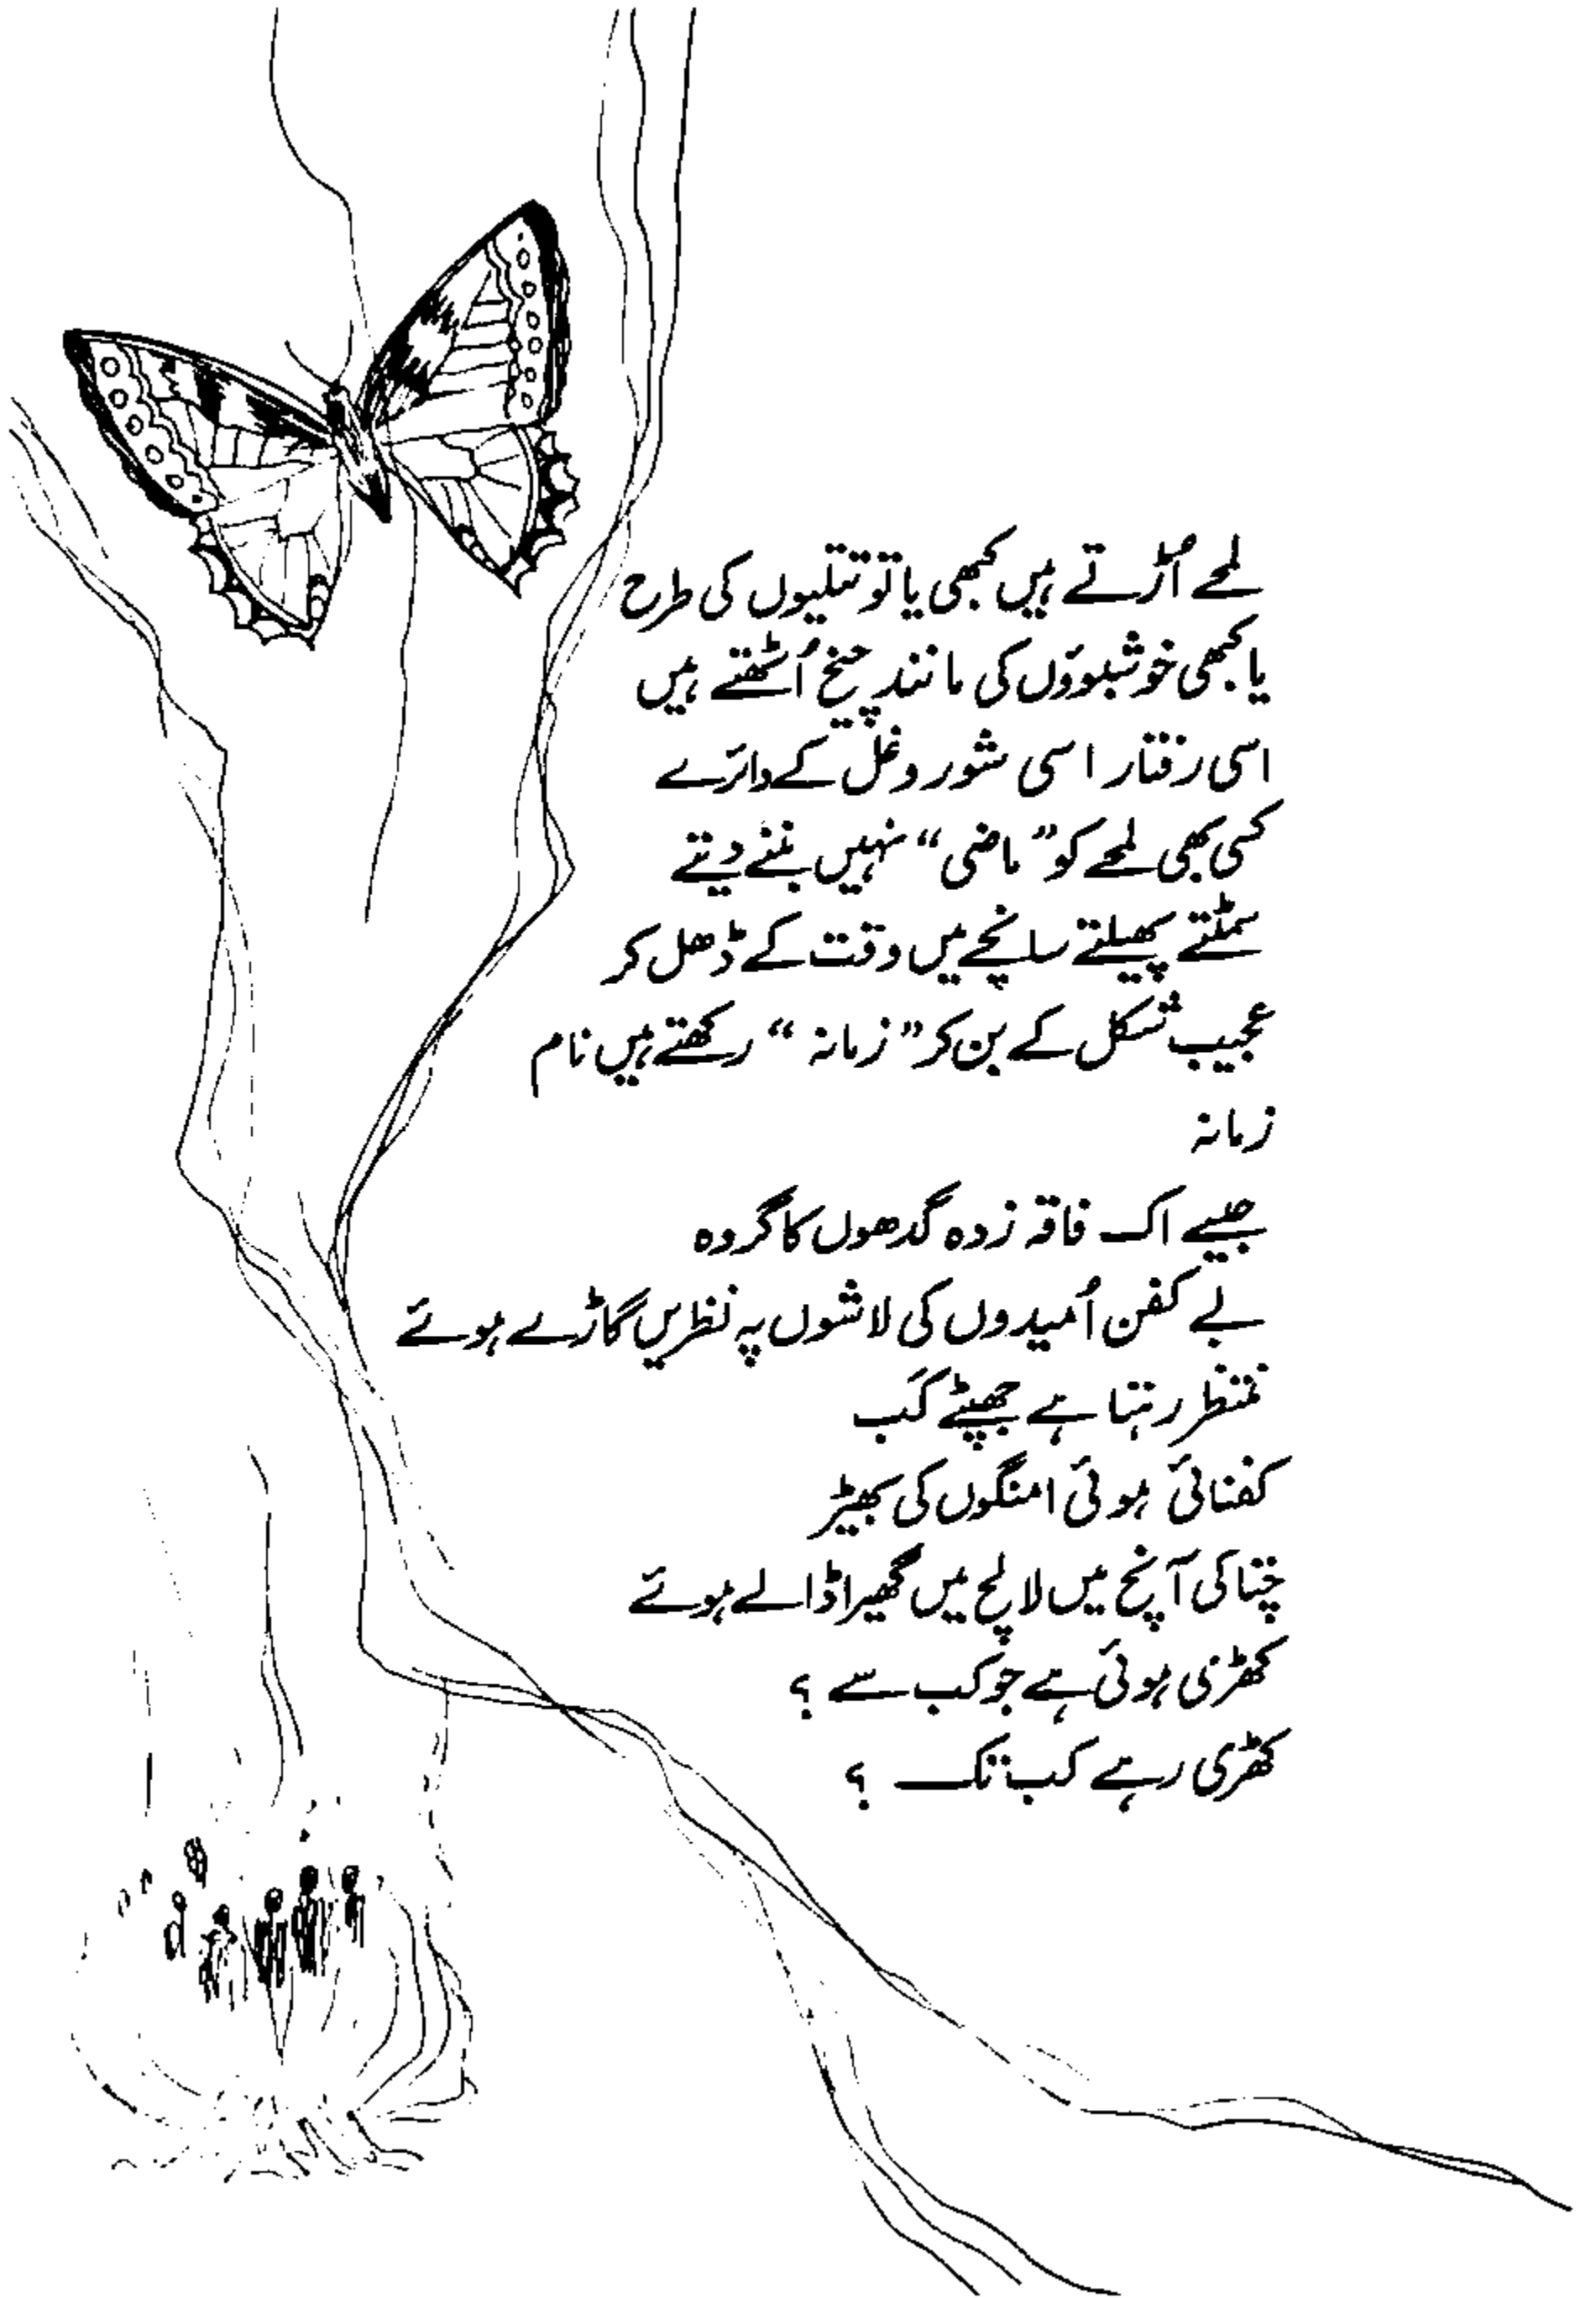 لمحے اُڑتے ہیں کبھی یا تو تتلیوں کی طرح
یا کبھی خوشبوؤں کی مانند چیخ اُٹھتے ہیں
اسی رفتار اسی شور و غل کے دائرے
کسی بھی لمحے کو ”ماضی“ نہیں بننے دیتے
سمٹتے پھیلتے سانچے میں وقت کے ڈھل کر
عجیب شکل کے بن کر ”زمانہ“ رکھتے ہیں نام
زمانہ
جیسے اک فاقہ زدہ گدھوں کا گروہ
بے کفن اُمیدوں کی لاشوں پہ نظریں گاڑے ہوئے
منتظر رہتا ہے جھپٹے کب
کفنائی ہوئی امنگوں کی بھیڑ
چتا کی آنچ میں لالچ میں گھیرا ڈالے ہوئے
کھڑی ہوئی ہے جو کب سے ؟
کھڑی رہے کب تک ؟